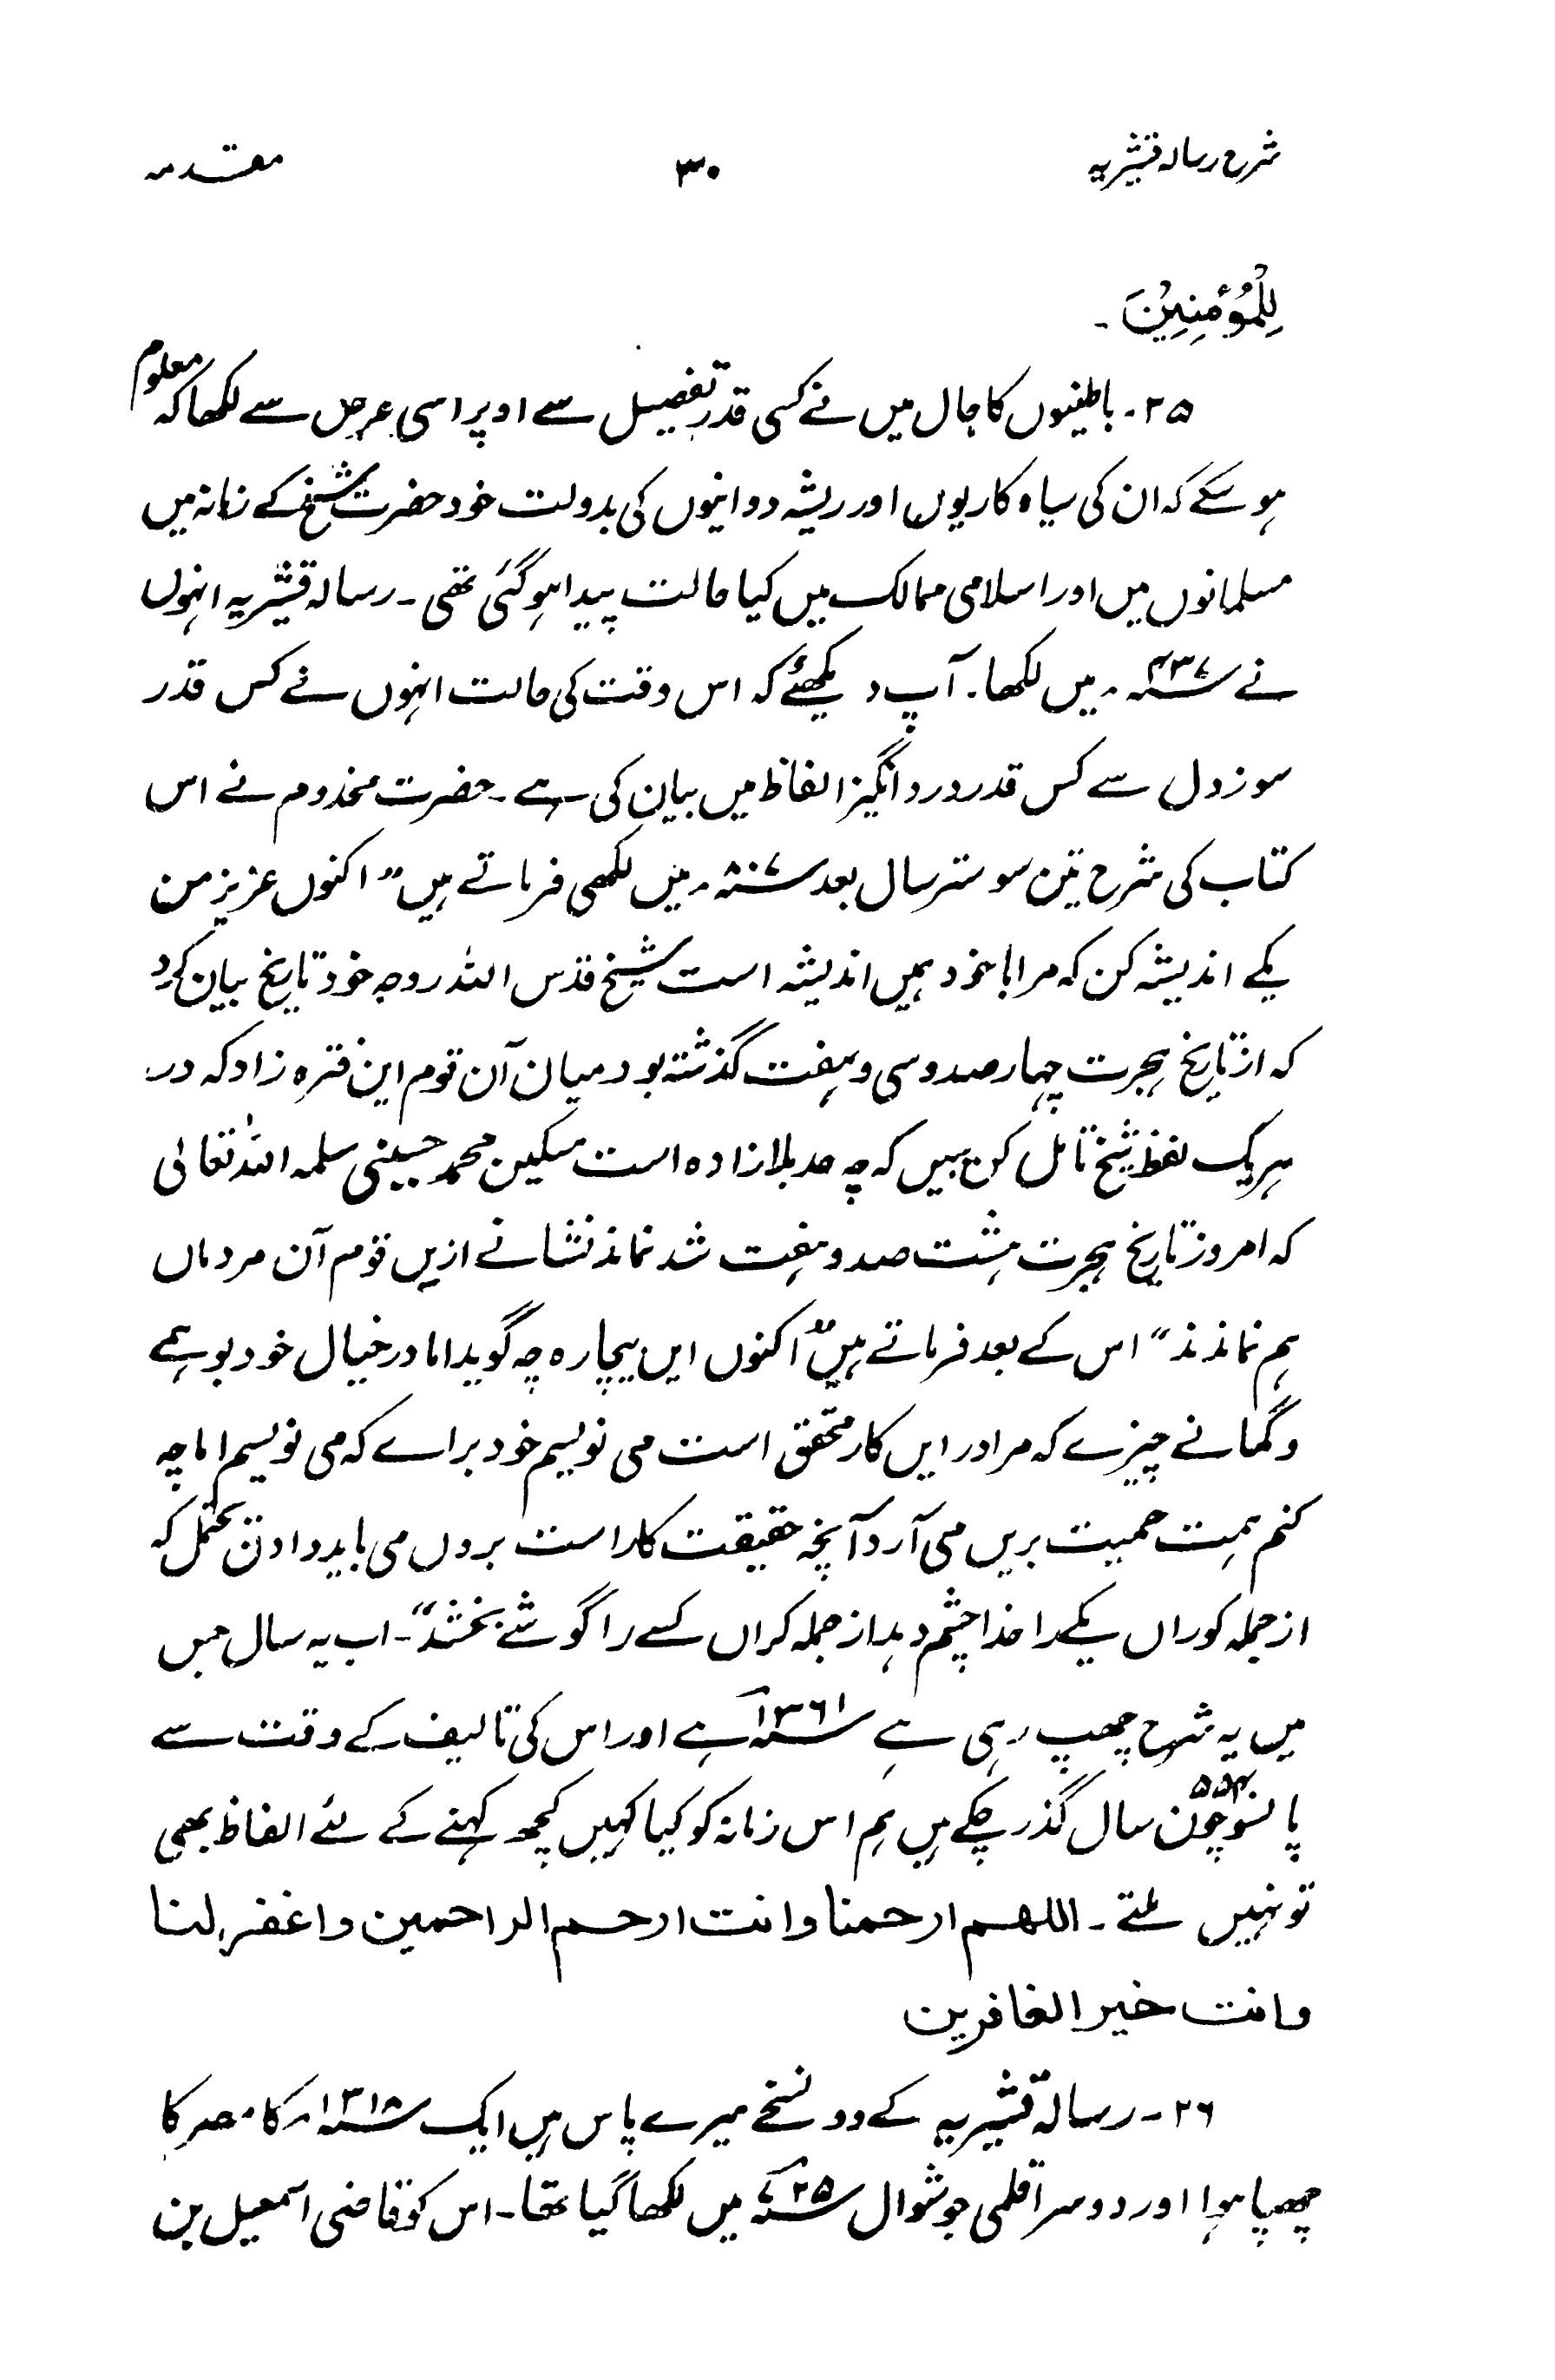 شرح رسالہ قشیریہ ۳۰ مقدمہ
لِلْمُؤْمِنِیْنَ ۔
۲۵۔ باطنیوں کا حال میں نے کسی قدر تفصیل سے اوپر اسی غرض سے لکھا کہ معلوم
ہو سکے کہ ان کی سیاہ کاریوں اور ریشہ دوانیوں کی بدولت خود حضرت شیخ کے زمانہ میں
مسلمانوں میں اور اسلامی ممالک میں کیا حالت پیدا ہو گئی تھی ۔ رسالہ قشیریہ انہوں
نے ۴۳۷ سنہ ء میں لکھا ۔ آپ دیکھئے کہ اس وقت کی حالت انہوں نے کس قدر
سوز دل سے کس قدر درد انگیز الفاظ میں بیان کی ہے ۔ حضرت مخدوم نے اس
کتاب کی شرح تین سو ستر سال بعد سنہ ۸۰۷ ء میں لکھی فرماتے ہیں ” اکنوں عزیز من
یکے اندیشہ کن کہ مرا با خود ہمیں اندیشہ است شیخ قدس اللہ روحہ خود تاریخ بیان کرد
کہ از تاریخ ہجرت چہار صد و سی و ہفت گذشتہ بود میان آن قوم این فترہ زاد کہ در
ہر یک لفظ شیخ تامل کن ببیں کہ چہ صد بلا زادہ است مسکین محمد حسینی سلمہ اللہ تعالیٰ
کہ امروز تاریخ ہجرت ہشت صد و ہفت شد نماند نشانے ازیں قوم آن مردماں
ہم نماندند “ اس کے بعد فرماتے ہیں ” اکنوں ایں بیچارہ چہ گوید اما در خیال خود بوہمے
و گمانے چیزے کہ مرا در ایں کار محقق است می نویسم خود براے کہ می نویسم اما چہ
کنم ہمت حمیت بریں می آرد آنچہ حقیقت کار است بروں می باید دادن محتمل کہ
از جملہ کوراں یکے را خدا چشم دہد از جملہ کراں کسے را گوشے بخشد “ ۔ اب یہ سال جس
میں یہ شرح چھپ رہی ہے سنہ ۱۳۶۱ ہے اور اس کی تالیف کے وقت سے
پانسو چوّن ۵۵۴ سال گذر چکے ہیں ہم اس زمانہ کو کیا کہیں کچھ کہنے کے لئے الفاظ بھی
تو نہیں ملتے ۔ اللھم ارحمنا وانت ارحم الراحمین واغفر لنا
وانت خیر الغافرین
۲۶۔ رسالہ قشیریہ کے دو نسخے میرے پاس ہیں ایک سنہ ۱۳۱۸ ء کا مصر کا
چھپا ہوا اور دوسرا قلمی جو شوال سنہ میں لکھا گیا تھا ۔ اس کو قاضی اسمعیل بن